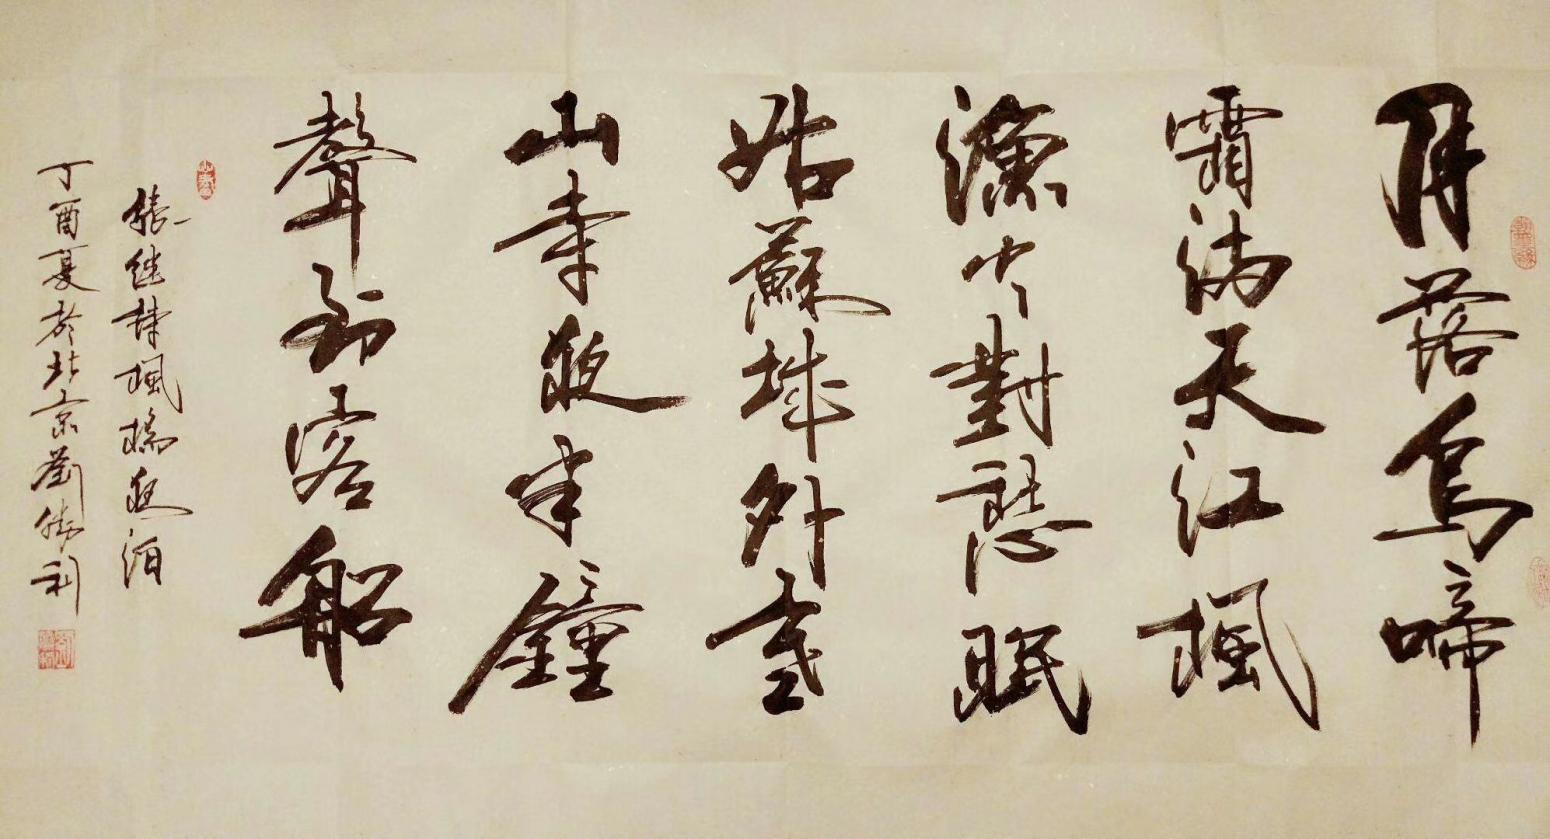 月落烏啼
霜滿天江楓
漁火對愁眠
姑蘇城外寒
山寺夜半鐘
聲到客船
張继詩楓橋夜泊
丁酉夏於北京劉勝利